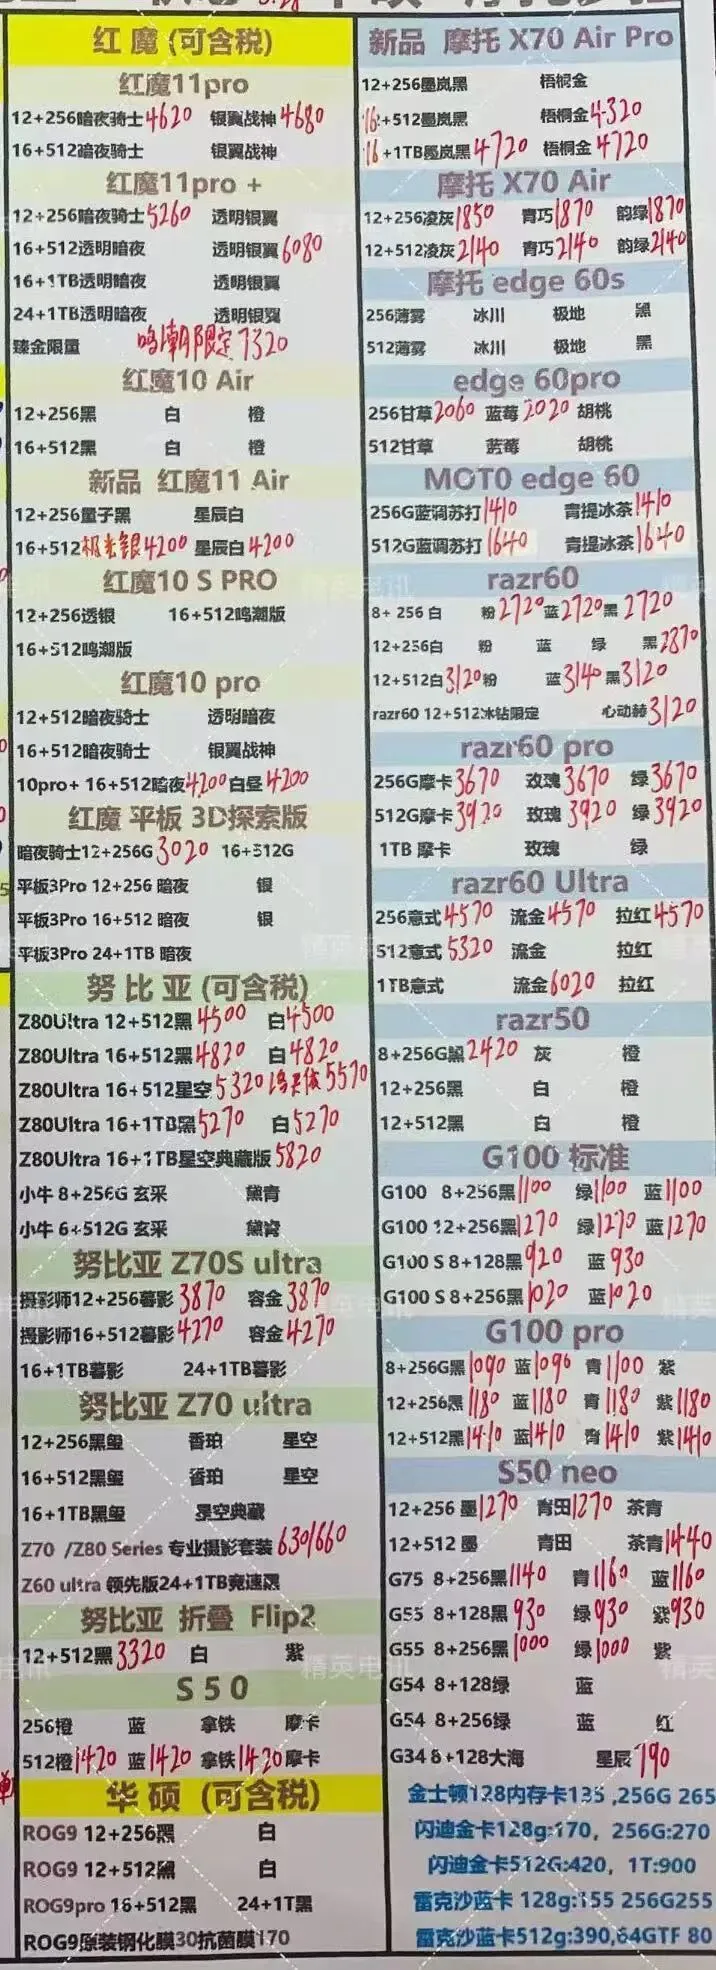 红 魔 (可含税)
红魔11pro
12+256暗夜骑士4620 银翼战神4680
16+512暗夜骑士 银翼战神
红魔11pro +
12+256暗夜骑士5260 透明银翼
16+512透明暗夜 透明银翼6080
16+1TB透明暗夜 透明银翼
24+1TB透明暗夜 透明银翼
臻金限量 鸣潮限定7320
红魔10 Air
12+256黑 白 橙
16+512黑 白 橙
新品 红魔11 Air
12+256量子黑 星辰白
16+512极光银4200 星辰白4200
红魔10 S PRO
12+256透银 16+512鸣潮版
16+512鸣潮版
红魔10 pro
12+512暗夜骑士 透明暗夜
16+512暗夜骑士 银翼战神
10pro+ 16+512暗夜4200白昼4200
红魔 平板 3D探索版
暗夜骑士12+256G3020 16+512G
平板3Pro 12+256 暗夜 银
平板3Pro 16+512 暗夜 银
平板3Pro 24+1TB 暗夜
努 比 亚 (可含税)
Z80Ultra 12+512黑4500 白4500
Z80Ultra 16+512黑4820 白4820
Z80Ultra 16+512星空5320 5570
Z80Ultra 16+1TB黑5270 白5270
Z80Ultra 16+1TB星空典藏版5820
小牛 8+256G 玄采 黛青
小牛 6+512G 玄采 黛青
努比亚 Z70S ultra
摄影师12+256暮影3870 容金3870
摄影师16+512暮影4270 容金4270
16+1TB暮影 24+1TB暮影
努比亚 Z70 ultra
12+256黑玺 香珀 星空
16+512黑玺 香珀 星空
16+1TB黑玺 星空典藏
Z70 /Z80 Series 专业摄影套装630/660
Z60 ultra 领先版24+1TB竞速黑
努比亚 折叠 Flip2
12+512黑3320 白 紫
S 5 0
256橙 蓝 拿铁 摩卡
512橙1420 蓝1420 拿铁1420摩卡
华 硕 (可含税)
ROG9 12+256黑 白
ROG9 12+512黑 白
ROG9pro 16+512黑 24+1T黑
ROG9原装钢化膜30抗菌膜170
新品 摩托 X70 Air Pro
12+256墨岚黑 梧桐金
16+512墨岚黑 梧桐金4320
16+1TB墨岚黑4720 梧桐金4720
摩托 X70 Air
12+256凌灰1850 青巧1870 韵绿1870
12+512凌灰2140 青巧2140 韵绿2140
摩托 edge 60s
256薄雾 冰川 极地 黑
512薄雾 冰川 极地 黑
edge 60pro
256甘草2060 蓝莓2020 胡桃
512甘草 蓝莓 胡桃
MOTO edge 60
256G蓝调苏打1410 青提冰茶1410
512G蓝调苏打1640 青提冰茶1640
razr60
8+ 256 白 粉2720蓝2720黑2720
12+256白 粉 蓝 绿 黑2870
12+512白3120粉 蓝3140黑3120
razr60 12+512冰钻限定 心动赫3120
razr60 pro
256G摩卡3670 玫瑰3670 绿3670
512G摩卡3920 玫瑰3920 绿3920
1TB 摩卡 玫瑰 绿
razr60 Ultra
256意式4570 流金4570 拉红4570
512意式5320 流金 拉红
1TB意式 流金6020 拉红
razr50
8+256G黑2420 灰 橙
12+256黑 白 橙
12+512黑 白 橙
G100 标准
G100 8+256黑1100 绿1100 蓝1100
G100 12+256黑1270 绿1270 蓝1270
G100 S 8+128黑920 蓝930
G100 S 8+256黑1020 蓝1020
G100 pro
8+256G黑1090 蓝1090 青1100 紫
12+256黑1180 蓝1180 青1180 紫1180
12+512黑1410 蓝1410 青1410 紫1410
S50 neo
12+256 墨1270 青田1270 茶青
12+512 墨 青田 茶青1440
G75 8+256黑1140 青1160 蓝1160
G55 8+128黑930 绿930 紫930
G55 8+256黑1000 绿1000 紫
G54 8+128绿 蓝
G54 8+256绿 蓝 红
G34 8+128大海 星辰790
金士顿128内存卡135 ,256G 265
闪迪金卡128g:170, 256G:270
闪迪金卡512G:420, 1T:900
雷克沙蓝卡 128g:155 256G255
雷克沙蓝卡512g:390,64GTF 80